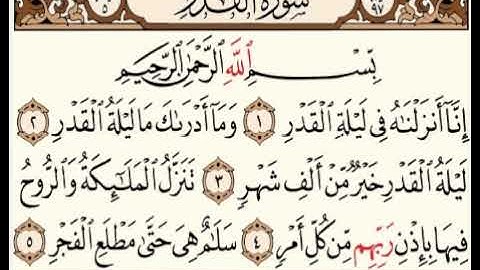 ٥ سورة القدر ٩٧
بِسْمِ ٱللَّهِ ٱلرَّحْمَٰنِ ٱلرَّحِيمِ
إِنَّآ أَنزَلْنَٰهُ فِى لَيْلَةِ ٱلْقَدْرِ ١ وَمَآ أَدْرَىٰكَ مَا لَيْلَةُ ٱلْقَدْرِ ٢
لَيْلَةُ ٱلْقَدْرِ خَيْرٌ مِّنْ أَلْفِ شَهْرٍ ٣ تَنَزَّلُ ٱلْمَلَٰٓئِكَةُ وَٱلرُّوحُ
فِيهَا بِإِذْنِ رَبِّهِم مِّن كُلِّ أَمْرٍ ٤ سَلَٰمٌ هِىَ حَتَّىٰ مَطْلَعِ ٱلْفَجْرِ ٥